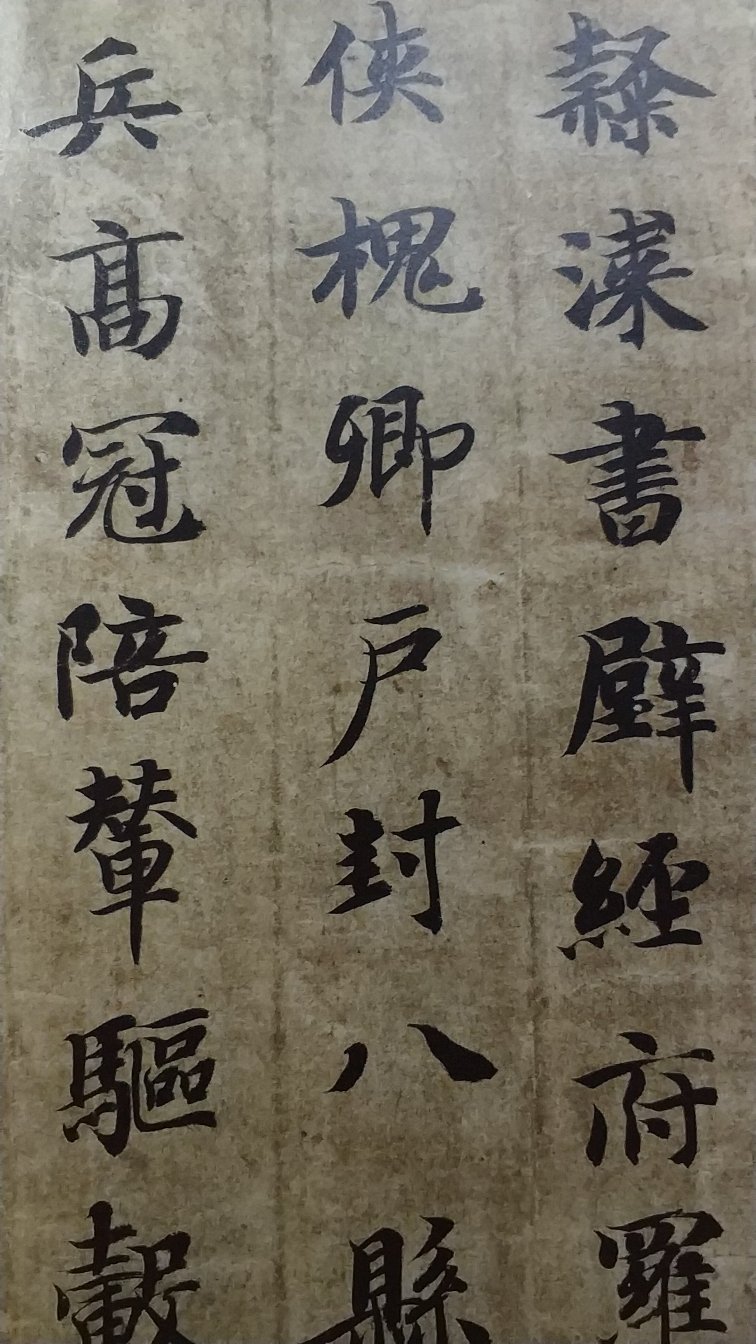 隸漆書壁經府羅
俠槐卿戶封八縣
兵高冠陪輦驅轂